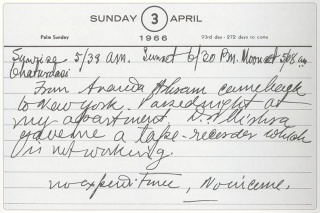 SUNDAY 3 APRIL
Palm Sunday 1966 93rd day - 272 days to come
Sunrise 5/38 A.M. Sunset 6/30 P.M. Moonset 5/18 am
Chaturdasi
From Ananda Ashram came back
to New York. Passed night at
my apartment. D. D. Mishra
gave me a tape-recorder which
is not working.
no expenditure, No income.